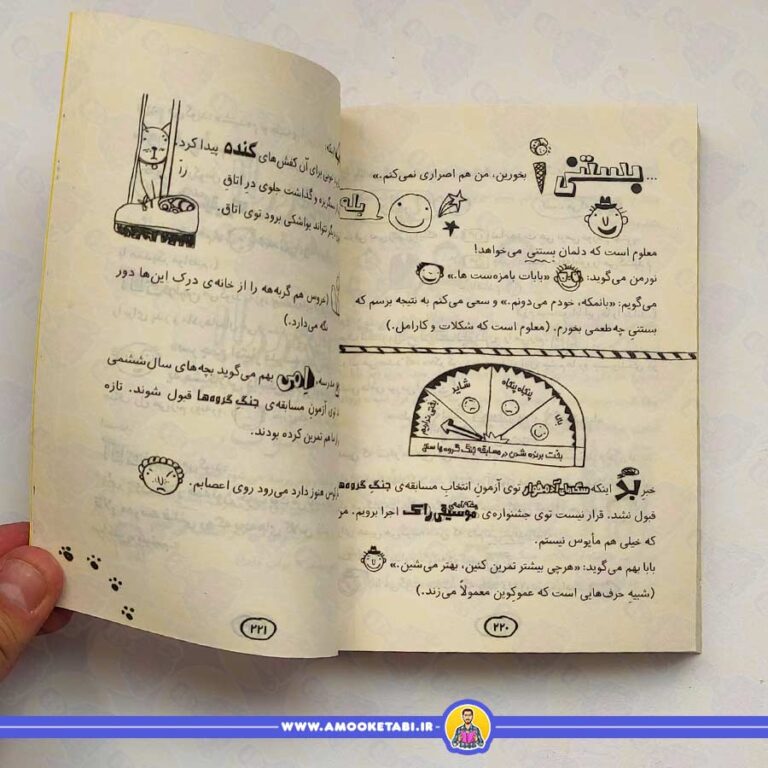 ... بستنی بخورین، من هم اصراری نمی‌کنم.»
بله
معلوم است که دلمان بستنی می‌خواهد!
نورمن می‌گوید: «بابات بامزه‌ست ها.»
می‌گویم: «بانمکه، خودم می‌دونم.» و سعی می‌کنم به نتیجه برسم که
بستنیِ چه‌طعمی بخورم. (معلوم است که شکلات و کارامل.)
شاید
پنجاه پنجاه
بخت برنده شدن در مسابقه جنگ گروه‌ها سنج
خبر بد اینکه توی آزمونِ انتخابِ مسابقه‌ی جنگِ گروه‌ها
قبول نشد. قرار نیست توی جشنواره‌ی موسیقی راک اجرا برویم.
که خیلی هم مأیوس نیستم.
بابا بهم می‌گوید: «هرچی بیشتر تمرین کنین، بهتر می‌شین.»
(شبیهِ حرف‌هایی است که عموکوین معمولاً می‌زند.)
۲۲۰
برای آن کفش‌های گنده پیدا کرد.
و گذاشت جلوی درِ اتاق
تواند یواشکی برود توی اتاق.
(عروس هم گربه‌هه را از خانه‌ی دِرِک این‌ها دور
می‌دارد.)
مدرسه، اِمی بهم می‌گوید بچه‌های سال‌ششمی
توی آزمونِ مسابقه‌ی جنگِ گروه‌ها قبول شوند. تازه
هم تمرین کرده بودند.
هنوز دارد می‌رود روی اعصابم.
۲۲۱
WWW.AMOOKETABI.IR